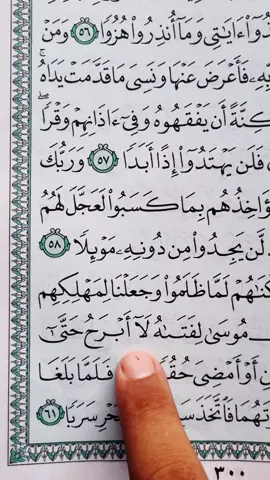 ذُوٓا۟ ءَايَٰتِى وَمَآ أُنذِرُوا۟ هُزُوًا ٥٦ وَمَنْ
فَأَعْرَضَ عَنْهَا وَنَسِىَ مَا قَدَّمَتْ يَدَاهُ ۚ
كِنَّةً أَن يَفْقَهُوهُ وَفِىٓ ءَاذَانِهِمْ وَقْرًا ۖ
فَلَن يَهْتَدُوٓا۟ إِذًا أَبَدًا ٥٧ وَرَبُّكَ
ؤَاخِذُهُم بِمَا كَسَبُوا۟ لَعَجَّلَ لَهُمُ
لَّن يَجِدُوا۟ مِن دُونِهِۦ مَوْئِلًا ٥٨
كْنَٰهُمْ لَمَّا ظَلَمُوا۟ وَجَعَلْنَا لِمَهْلِكِهِم
مُوسَىٰ لِفَتَىٰهُ لَآ أَبْرَحُ حَتَّىٰٓ
أَوْ أَمْضِىَ حُقُ فَلَمَّا بَلَغَا
تَهُمَا فَٱتَّخَذَ سَ حْرِ سَرَبًا ٦١
٣٠٠